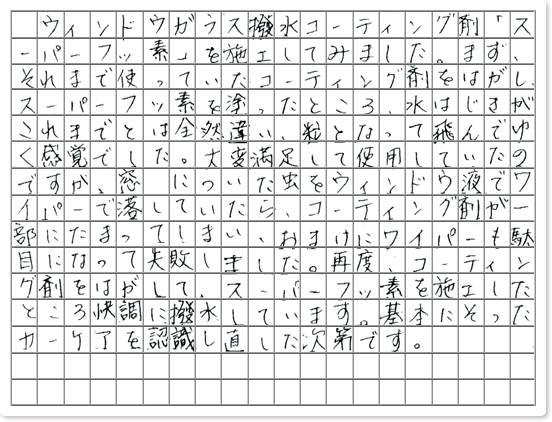 ウィンドウガラス撥水コーティング剤「ス
ーパーフッ素」を施工してみました。まず、
それまで使っていたコーティング剤をはがし、
スーパーフッ素を塗ったところ、水はじきが
これまでとは全然違い、粒となって飛んでゆ
く感覚でした。大変満足して使用していたの
ですが、窓についた虫をウィンドウ液でワ
イパーで落していたら、コーティング剤が一
部にたまってしまい、おまけにワイパーも駄
目になって失敗しました。再度、コーティン
グ剤をはがして、スーパーフッ素を施工した
ところ快調に撥水しています。基本にそった
カーケアを認識し直した次第です。